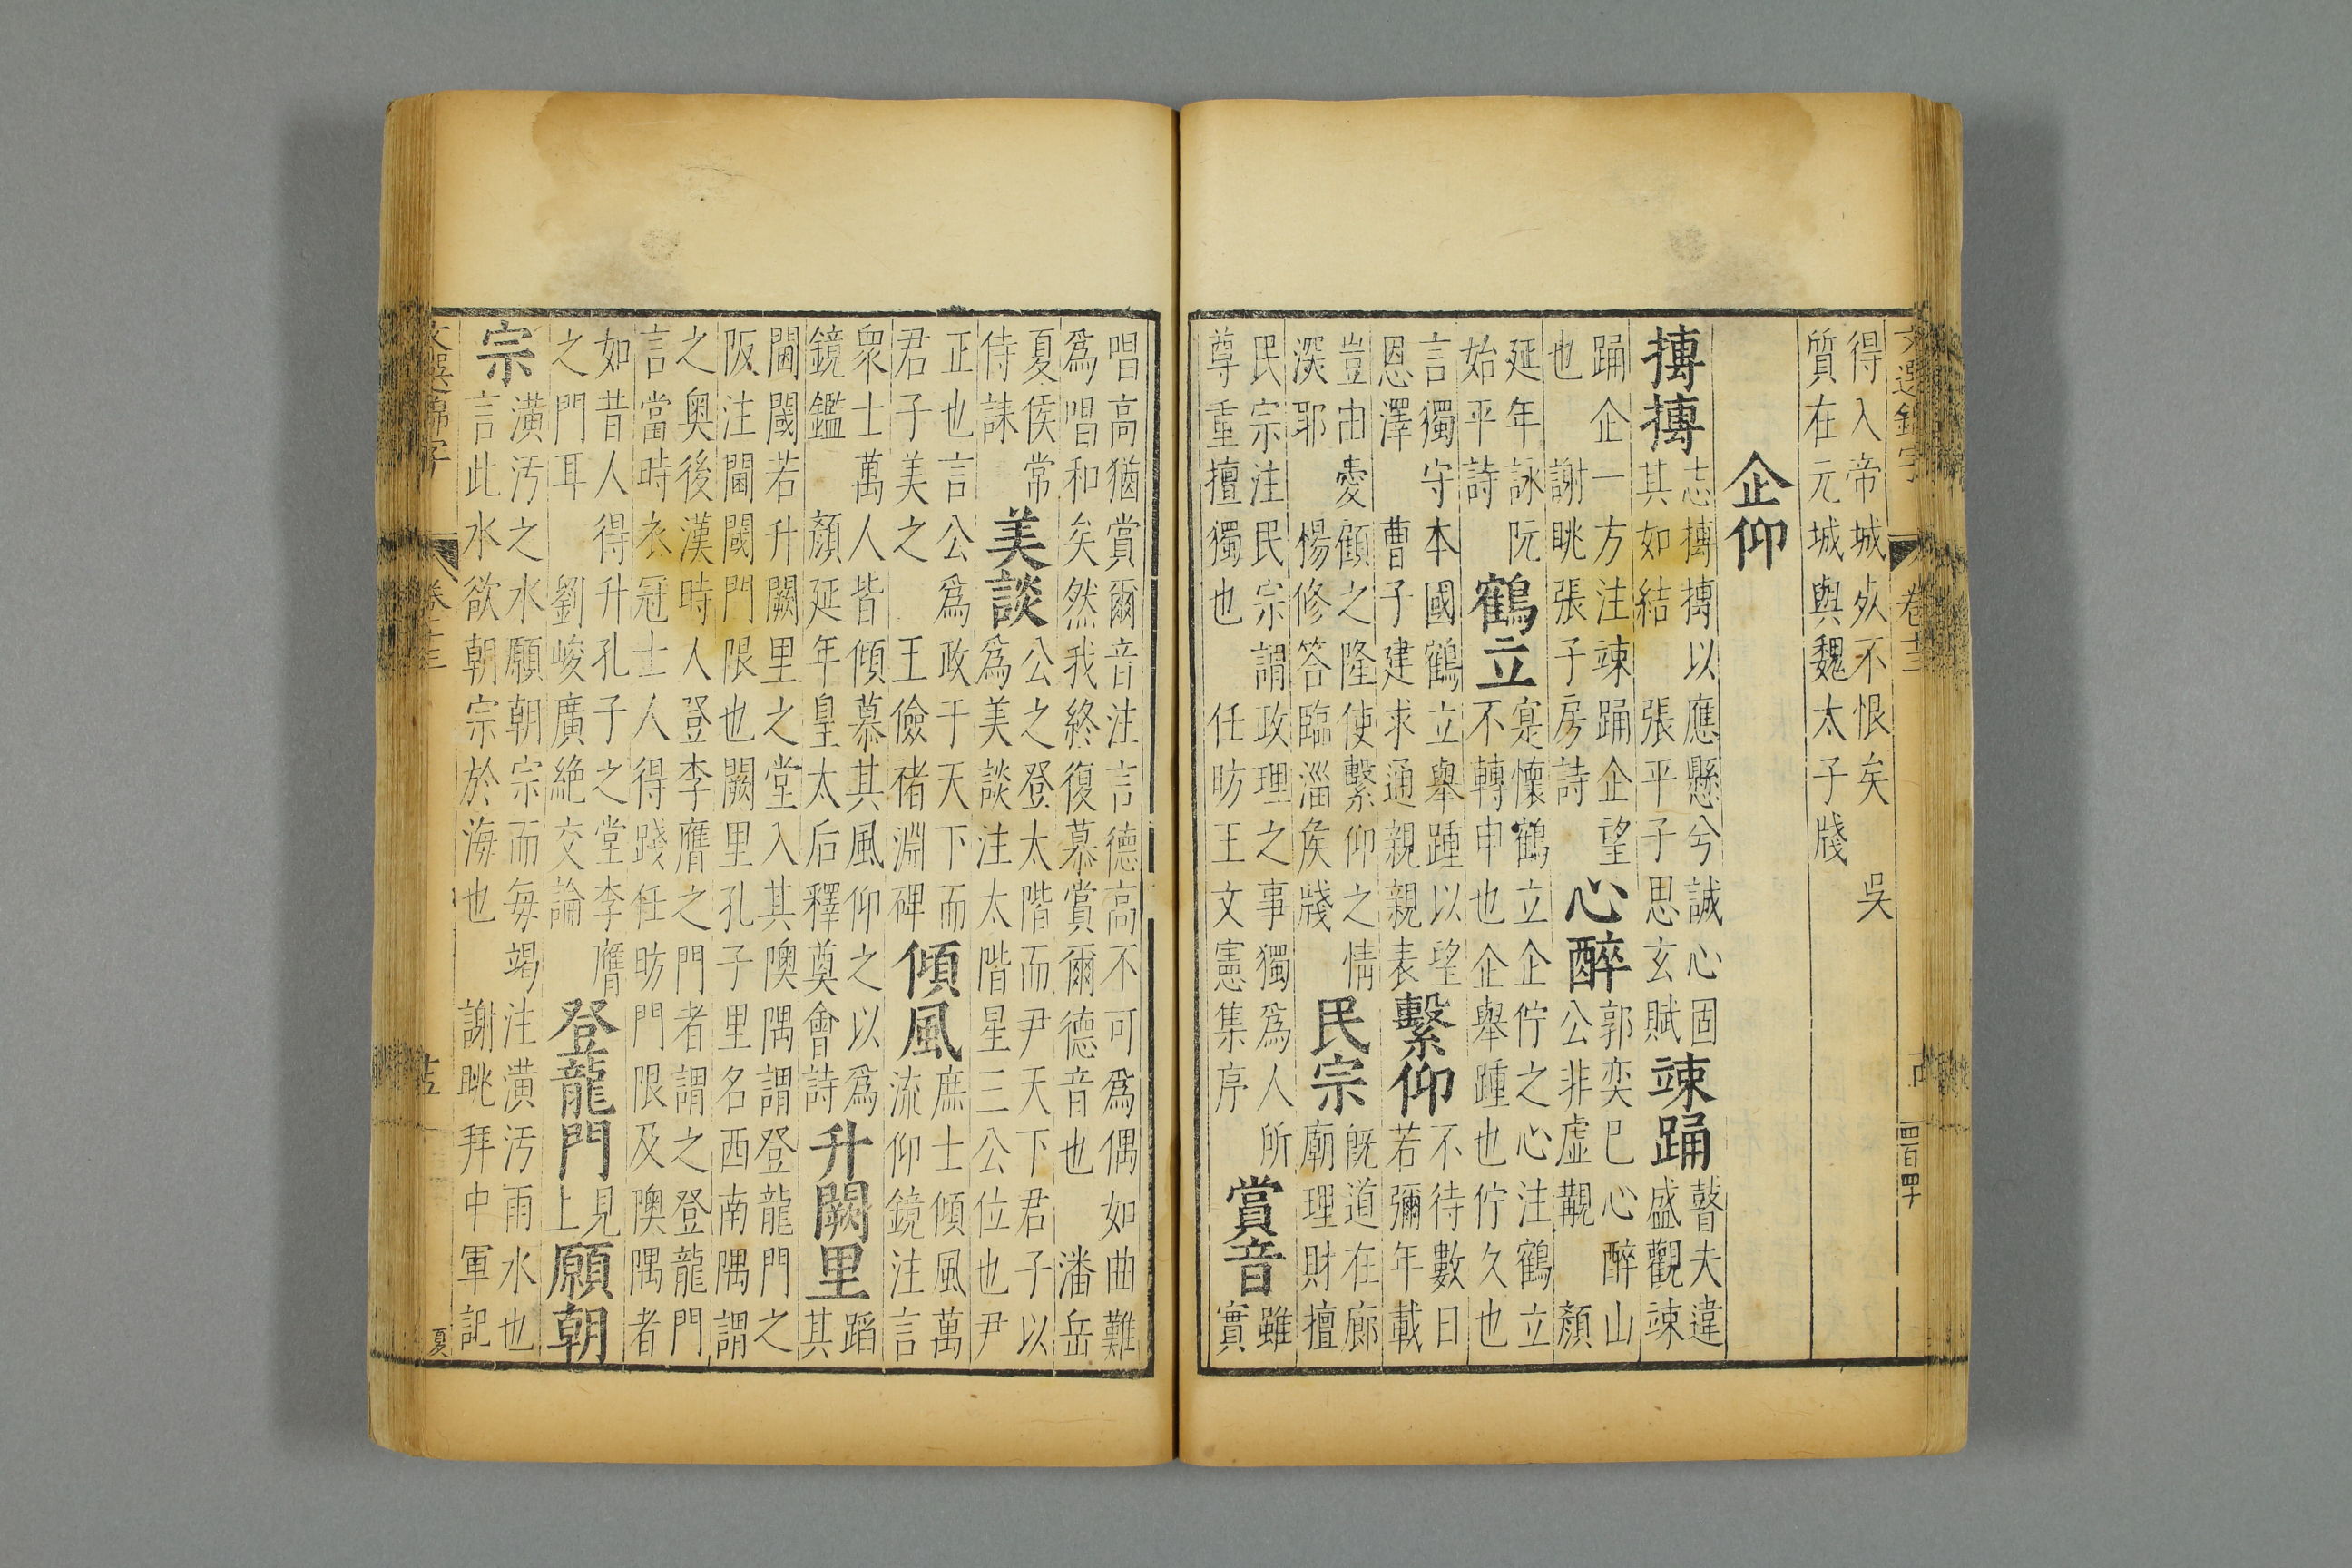 文選錦字 卷十三 十四 四百四十
得入帝城死不恨矣 吳
質在元城與魏太子牋
企仰
摶摶 志摶摶以應懸兮誠心固
其如結 張平子思玄賦
竦踊 瞽夫違
盛觀竦
踊企一方注竦踊企望
也 謝眺張子房詩
心醉 郭奕巳心醉山
公非虛覯 顏
延年詠阮
始平詩
鶴立 寔懷鶴立企佇之心注鶴立
不轉申也企舉踵也佇久也
言獨守本國鶴立舉踵以望
恩澤 曹子建求通親親表
繫仰 不待數日
若彌年載
豈由愛顧之隆使繫仰之情
深耶 楊修答臨淄矦牋
民宗 旣道在廊
廟理財擅
民宗注民宗謂政理之事獨爲人所
尊重擅獨也 任昉王文憲集序
賞音 雖
實
唱高猶賞爾音注言德高不可爲偶如曲難
爲唱和矣然我終復慕賞爾德音也 潘岳
夏侯常
侍誄
美談 公之登太階而尹天下君子以
爲美談注太階星三公位也尹
正也言公爲政于天下而
君子美之 王儉褚淵碑
傾風 庶士傾風萬
流仰鏡注言
衆士萬人皆傾慕其風仰之以爲
鏡鑑 顏延年皇太后釋奠會詩
升闕里 蹈
其
閫閾若升闕里之堂入其隩隅謂登龍門之
阪注閫閾門限也闕里孔子里名西南隅謂
之奧後漢時人登李膺之門者謂之登龍門
言當時衣冠士人得踐任昉門限及隩隅者
如昔人得升孔子之堂李膺
之門耳 劉峻廣絶交論
登龍門 見
上
願朝
宗 潢汚之水願朝宗而每竭注潢汚雨水也
言此水欲朝宗於海也 謝眺拜中軍記
文選錦字 卷十三 十五 夏